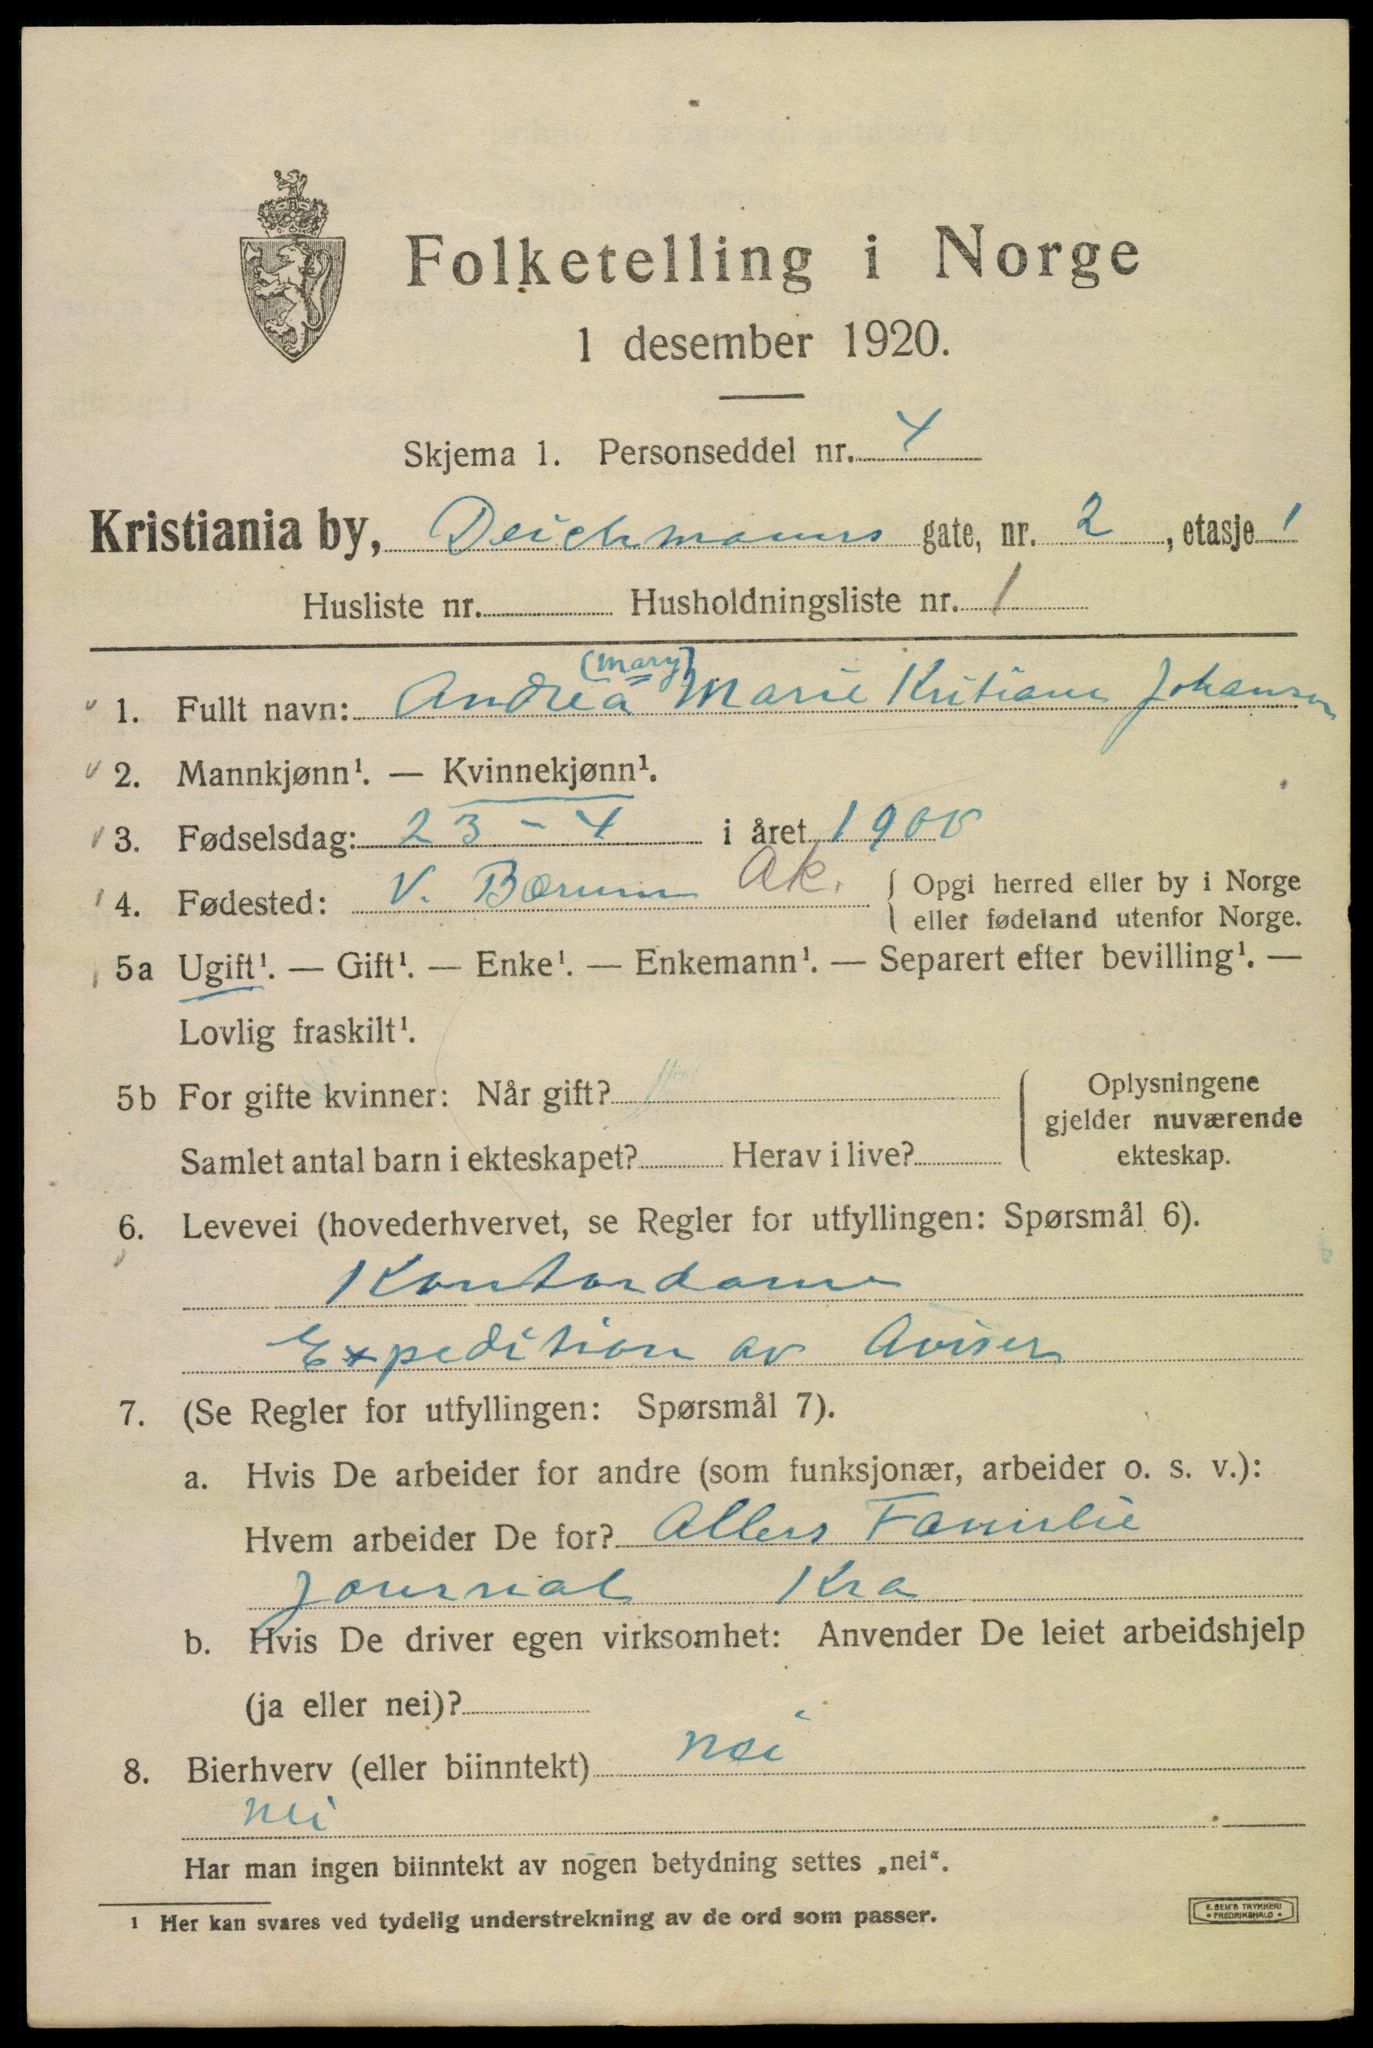 Folketelling i Norge
1 desember 1920.
Skjema 1. Personseddel nr. 4
Kristiania by, Deichmanns gate, nr. 2, etasje 1
Husliste nr. Husholdningsliste nr. 1
(Mary)
1. Fullt navn: Andrea Marie Kristiane Johansen
2. Mannkjønn¹. — Kvinnekjønn¹.
3. Fødselsdag: 23-4 i året 1900
4. Fødested: V. Bærum Ak. { Opgi herred eller by i Norge
eller fødeland utenfor Norge.
5a Ugift¹. — Gift¹. — Enke¹. — Enkemann¹. — Separert efter bevilling¹. —
Lovlig fraskilt¹.
5b For gifte kvinner: Når gift? { Oplysningene
gjelder nuværende
Samlet antal barn i ekteskapet? Herav i live? ekteskap.
6. Levevei (hovederhvervet, se Regler for utfyllingen: Spørsmål 6).
Kontordame
Expedition av Aviser
7. (Se Regler for utfyllingen: Spørsmål 7).
a. Hvis De arbeider for andre (som funksjonær, arbeider o. s. v.):
Hvem arbeider De for? Allers Familie
Journal Kra
b. Hvis De driver egen virksomhet: Anvender De leiet arbeidshjelp
(ja eller nei)?
8. Bierhverv (eller biinntekt) nei
nei
Har man ingen biinntekt av nogen betydning settes „nei“.
¹ Her kan svares ved tydelig understrekning av de ord som passer.
E. SEM'S TRYKKERI
• FREDRIKSHALD •